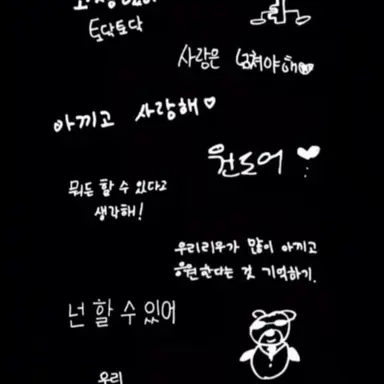 토닥토닥
사랑은 넘쳐야해
아끼고 사랑해♡
원도어
뭐든 할 수 있다고
생각해!
우리리우가 많이 아끼고
응원한다는 것 기억하기.
넌 할 수 있어
우리